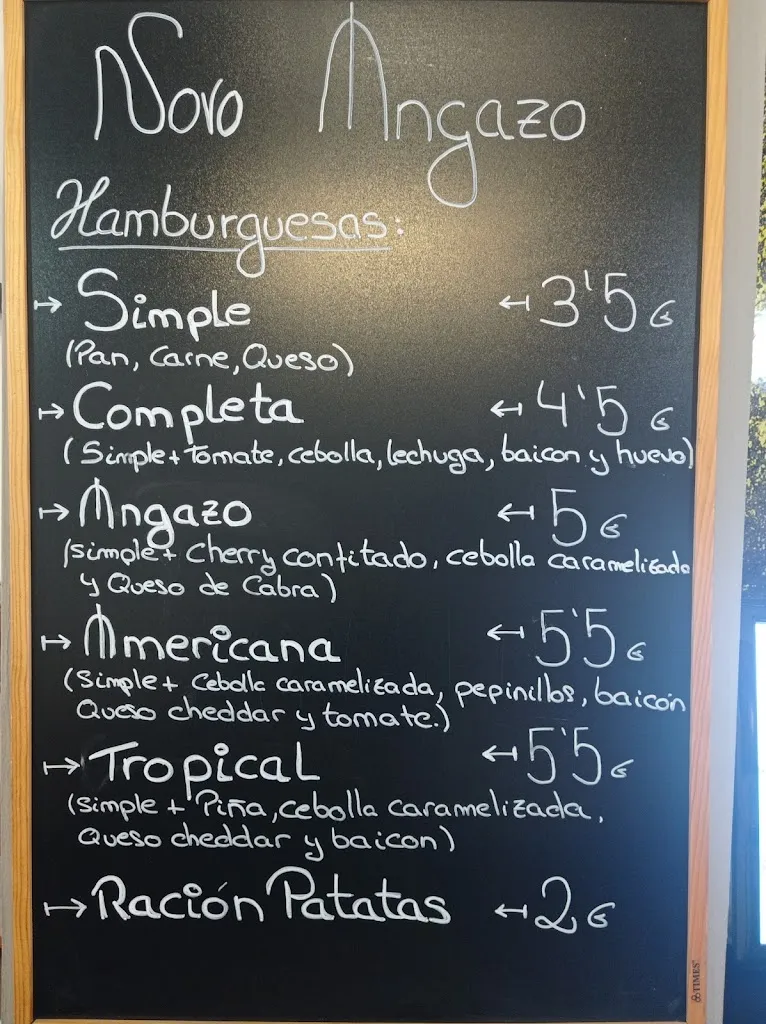 Novo Angazo
Hamburguesas:
↦ Simple ↤ 3'5 €
(Pan, Carne, Queso)
↦ Completa ↤ 4'5 €
(Simple + tomate, cebolla, lechuga, baicon y huevo)
↦ Angazo ↤ 5 €
(simple + Cherry confitado, cebolla caramelizada
y Queso de Cabra)
↦ Americana ↤ 5'5 €
(Simple + Cebolla caramelizada, pepinillos, baicon
Queso cheddar y tomate.)
↦ Tropical ↤ 5'5 €
(simple + Piña, cebolla caramelizada,
Queso cheddar y baicon)
↦ Ración Patatas ↤ 2 €
TIMES